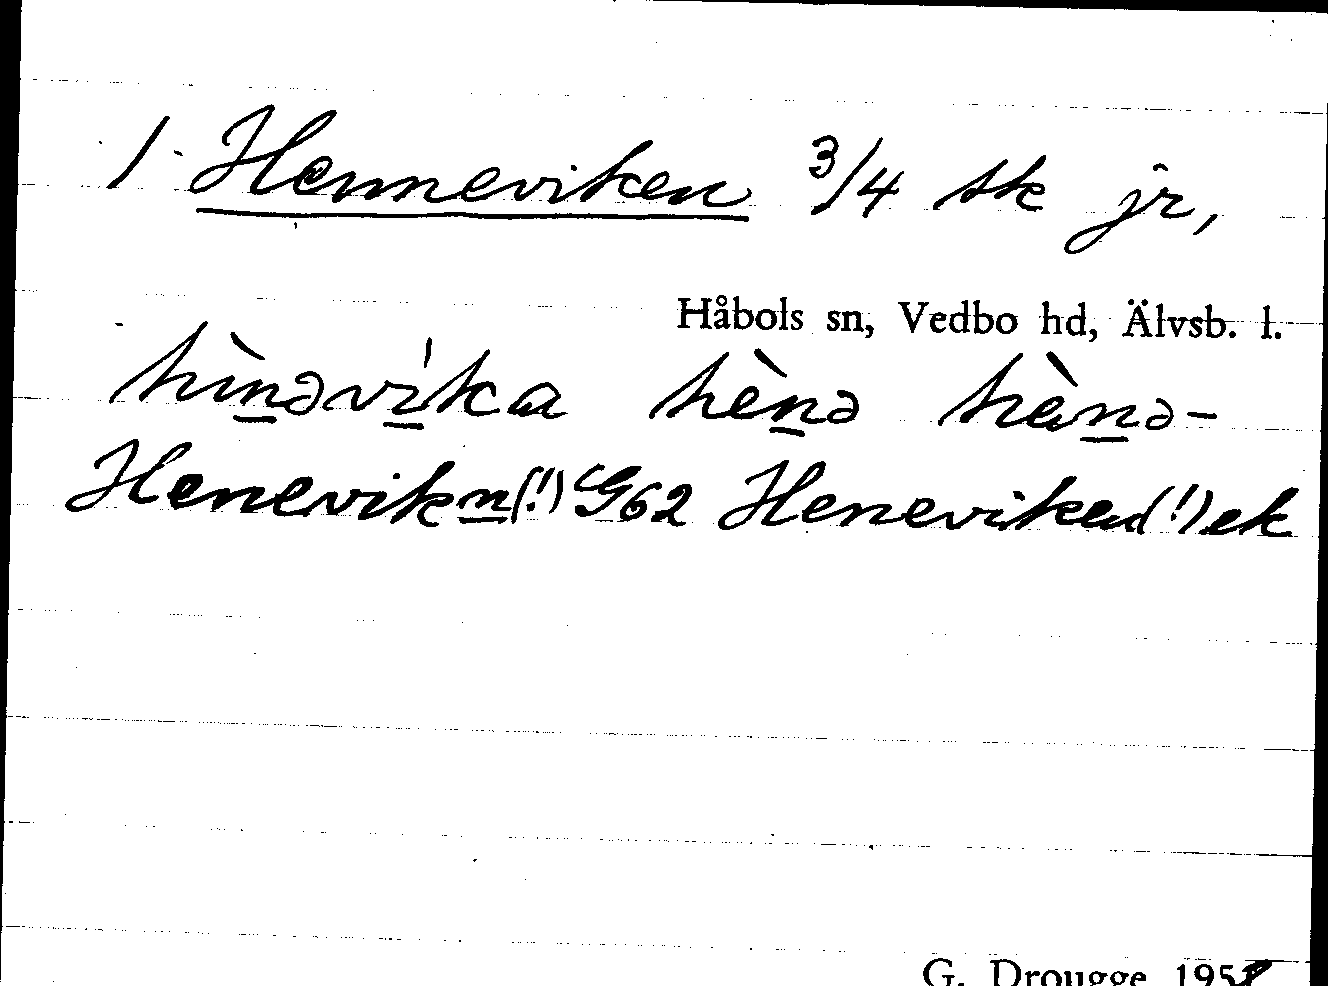 1. Henneviken 3/4 sk jr,
Håbols sn, Vedbo hd, Älvsb. l.
hìn̲əvi̲'ka hèn̲ə hèn̲ə-
Henevikn̲(!) G62 Heneviken(!) ek
G. Drougge 1951